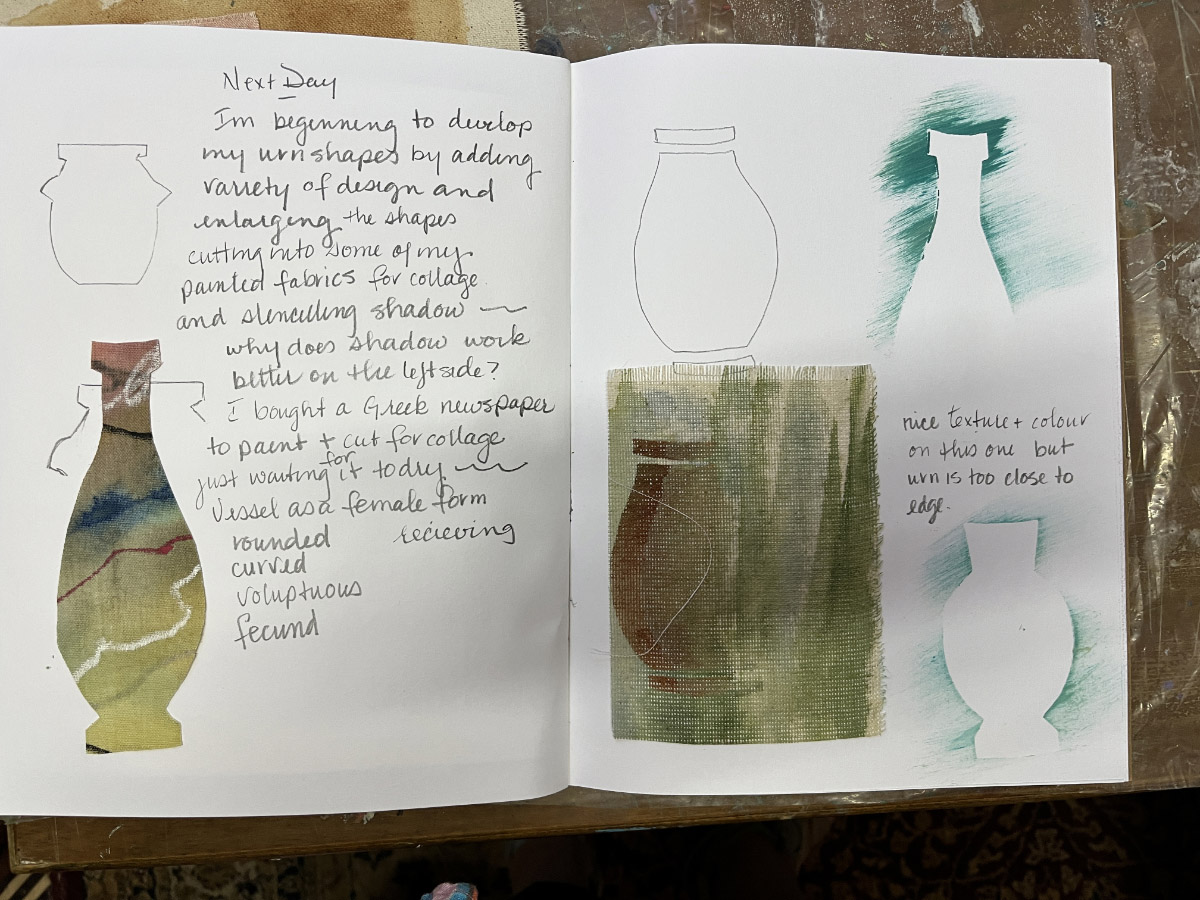 Next Day
Im beginning to develop
my urn shapes by adding
variety of design and
enlarging the shapes
cutting into some of my
painted fabrics for collage
and stencilling shadow —
why does shadow work
better on the left side?
I bought a Greek newspaper
to paint + cut for collage
just waiting for it to dry —
Vessel as a female form
rounded recieving
curved
voluptuous
fecund
nice texture + colour
on this one but
urn is too close to
edge.